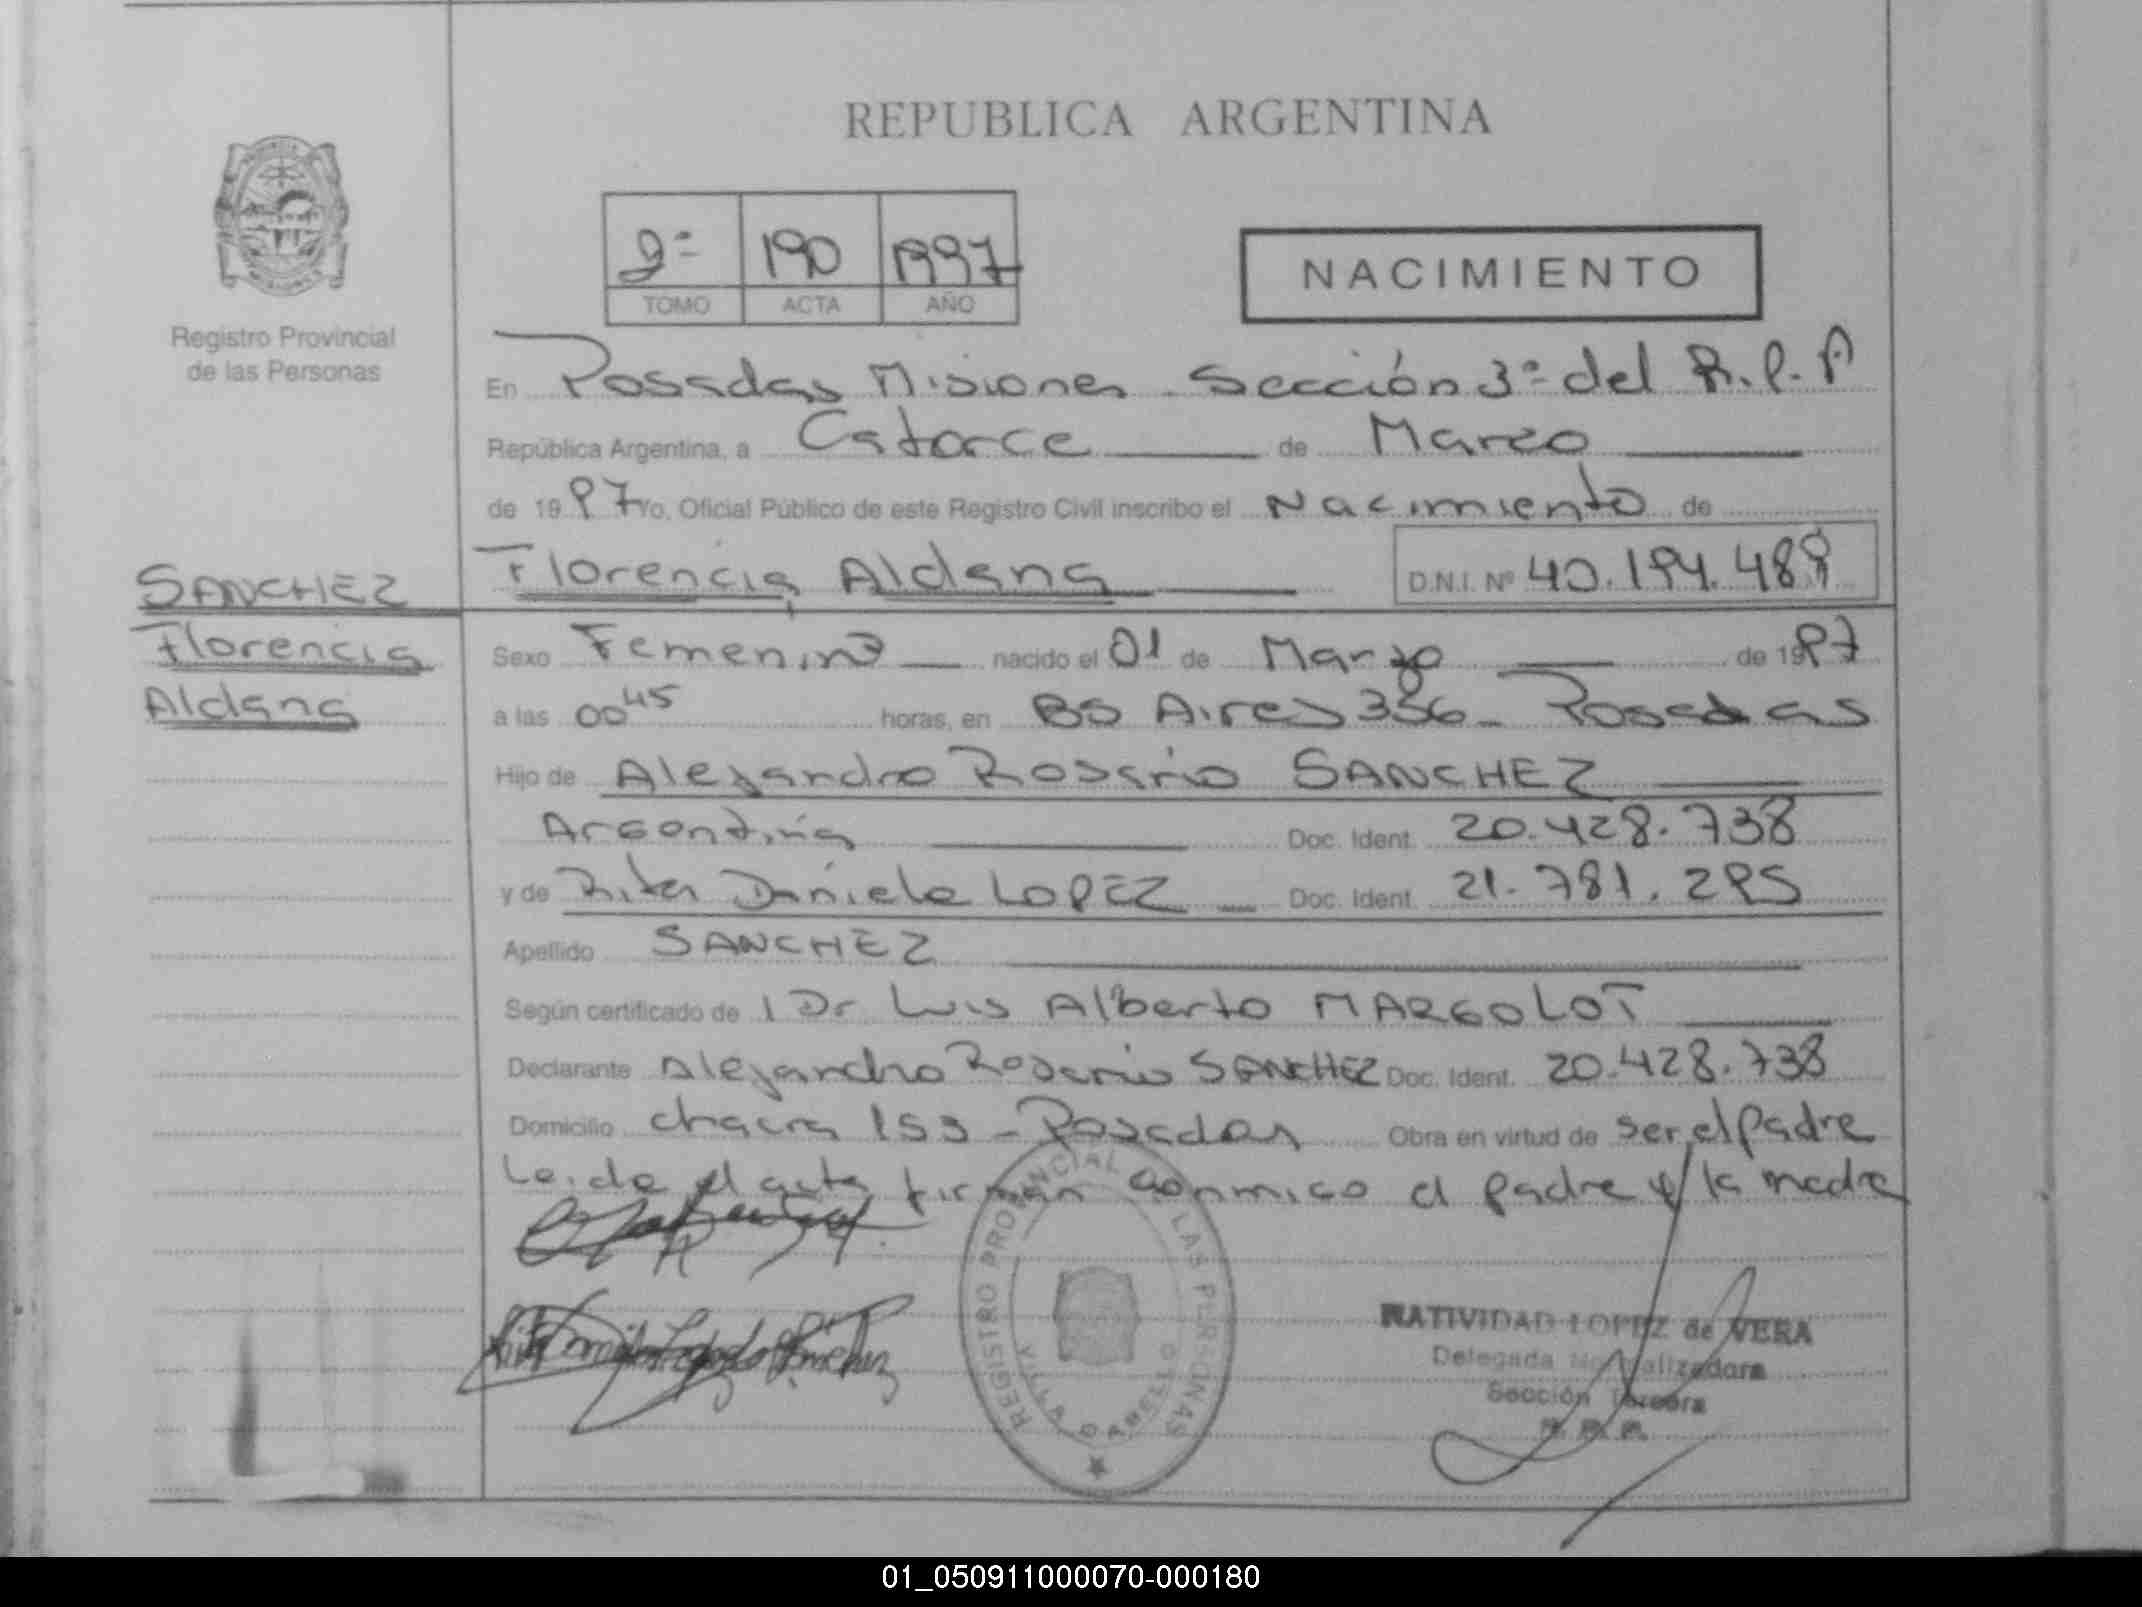 REPUBLICA ARGENTINA
Registro Provincial
de las Personas
2º 190 1997
TOMO ACTA AÑO
NACIMIENTO
En Posadas Misiones Sección 3º del R.P.P
República Argentina, a Catorce de Marzo
de 1997 Yo, Oficial Público de este Registro Civil inscribo el Nacimiento de
Florencia Aldana D.N.I. Nº 40.194.489
SANCHEZ
Florencia
Aldana
Sexo Femenino nacido el 01 de Marzo de 1997
a las 00 45 horas, en BS Aires 356 - Posadas
Hijo de Alejandro Rosario SANCHEZ
Argentina Doc. Ident. 20.428.738
y de Rita Daniela LOPEZ Doc. Ident. 21.781.295
Apellido SANCHEZ
Según certificado de l Dr Luis Alberto MARGOLOT
Declarante Alejandro Rosario SANCHEZ Doc. Ident. 20.428.738
Domicilio chacra 153 - Posadas Obra en virtud de ser el padre
Leida el acta firman conmigo el padre y la madre
REGISTRO PROVINCIAL DE LAS PERSONAS
VILLA
NATIVIDAD LOPEZ de VERA
Delegada Normalizadora
Sección Tercera
R. P. P.
01_050911000070-000180